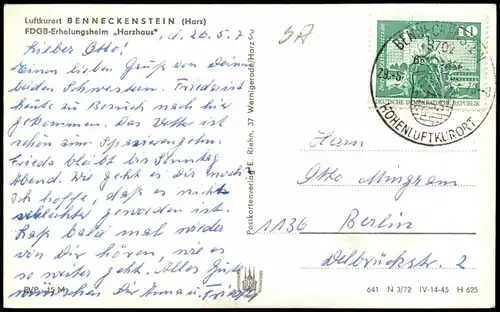 Luftkurort BENNECKENSTEIN (Harz)
FDGB-Erholungsheim „Harzhaus"
, d. 26.5.73
Lieber Otto!
Einen lieben Gruß von Deinen
beiden Schwestern. Frieda ist
heute zu Besuch nach hier
gekommen. Das Wetter ist
schön zum Spazierengehn.
Frieda bleibt bis Sonntag
Abend. Wie geht es Dir noch
Ich hoffe, daß es nicht
schlechter geworden ist.
Laß bald mal wieder
von Dir hören, wie es
so weiter geht. Alles Gute
wünschen Dir Anna u. Frieda
EVP 15 M
Postkartenverlag E. Riehn, 37 Wernigerode/Harz
10
DEUTSCHE DEMOKRATISCHE REPUBLIK
BENNECKENSTEIN
3702
HÖHENLUFTKURORT
Herrn
Otto Mingram
1136 Berlin
Delbrückstr. 2
641 N 3/72 IV-14-45 H 625